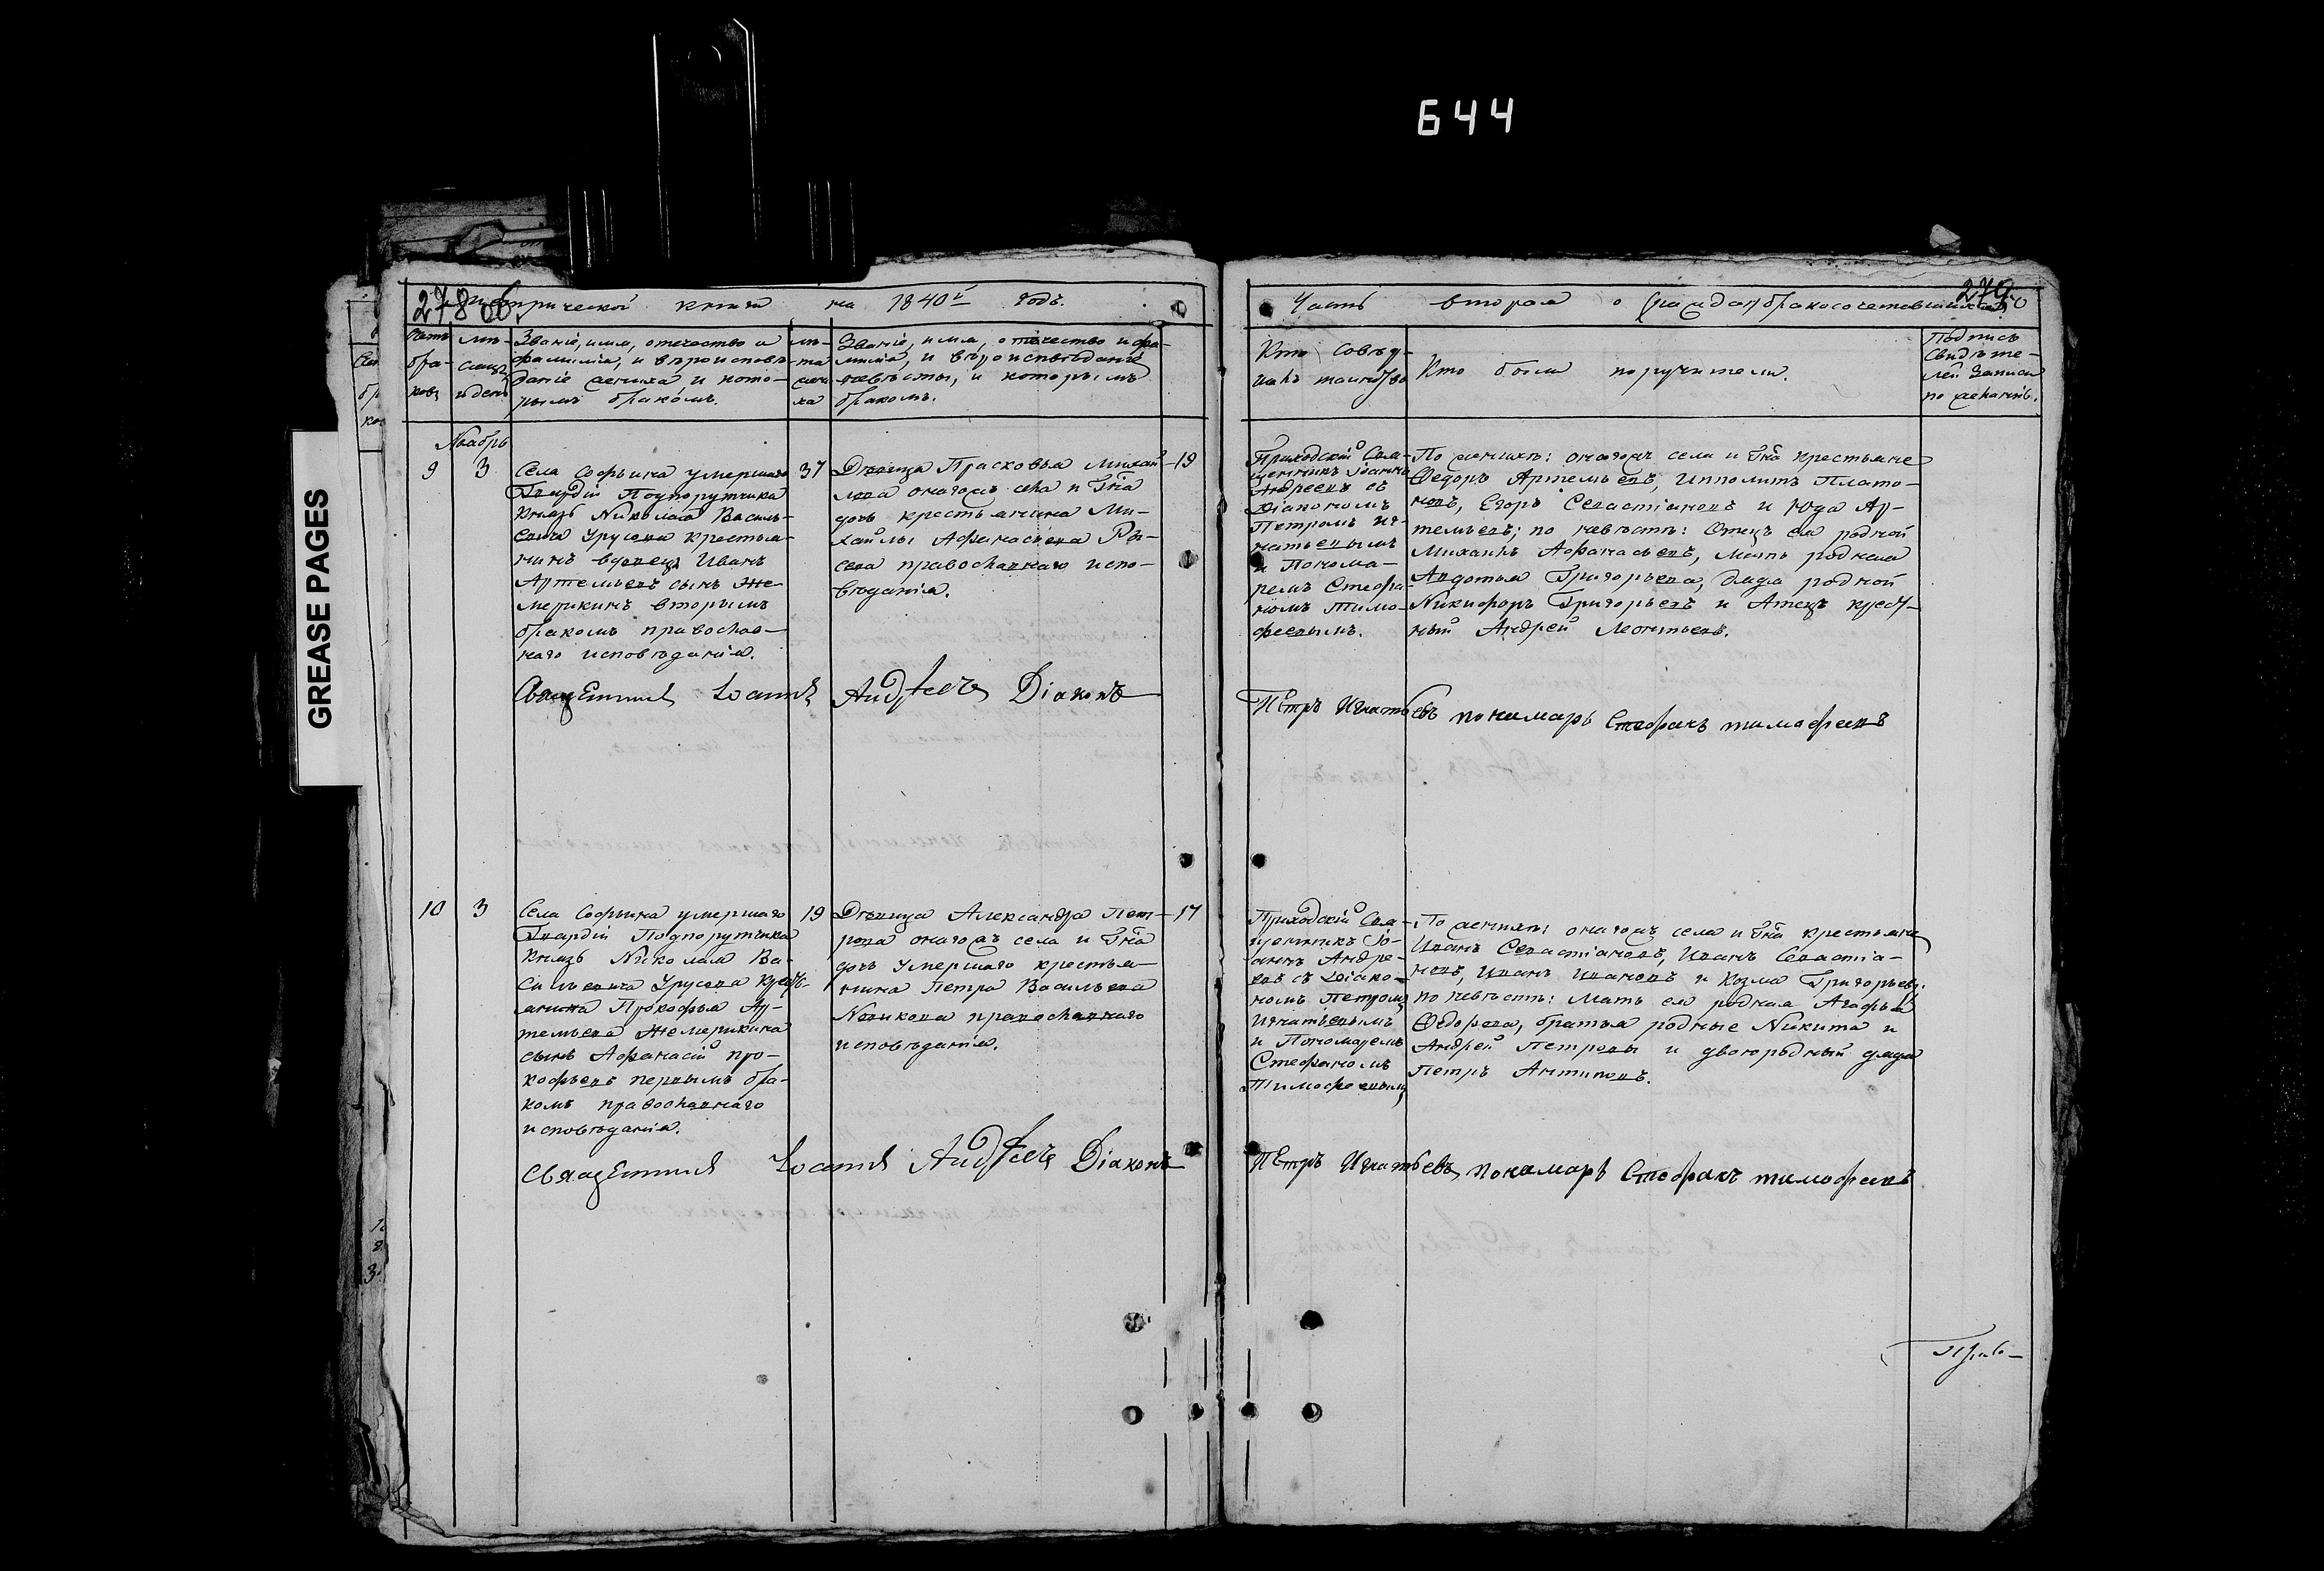 644
GREASE PAGES
278 об.
Метрической книги на 1840й годъ.
Счетъ бра-ковъ
мѣ-сяцъ и день
Званіе, имя, отечество и
фамилія, и вѣроисповѣ-
даніе жениха и кото-
рымъ бракомъ.
лѣ-та жени-ха
Званіе, имя, отечество и фа-
милія, и вѣроисповѣданіе
невѣсты, и которымъ
бракомъ.
Ноябрь
9 3
Села Софьина умершаго
Гвардіи Подпорутчика
Князь Николая Василь-
евича Урусова крестья-
нинъ вдовецъ Иванъ
Артемьевъ сынъ Же-
мерикинъ вторымъ
бракомъ православ-
наго исповѣданія.
37
Дѣвица Прасковья Михай-
лова онагожъ села и Гна
дочь крестьянина Ми-
хайлы Афанасьева Ры-
сева православнаго испо-
вѣданія.
19
Священникъ Іоаннъ Андреевъ Діаконъ
10 3
Села Софьина умершаго
Гвардіи Подпорутчика
Князь Николая Ва-
сильевича Урусова крест-
янина Прокофья Ар-
темьева Жемерикина
сынъ Афанасій Про-
кофьевъ первымъ бра-
комъ православнаго
исповѣданія.
19
Дѣвица Александра Пет-
рова онагожъ села и Гна
дочь умершаго крестья-
нина Петра Васильева
Новикова православнаго
исповѣданія.
17
Священникъ Іоаннъ Андреевъ Діаконъ
279
Часть вторая о бракосочетавшихся
Кто совер-
шалъ таинство
Кто были поручители.
Подпись
свидѣте-
лей записи
по желанію.
Приходскій Свя-
щенникъ Іоаннъ
Андреевъ съ
Діакономъ
Петромъ Иг-
натьевымъ
и Понома-
ремъ Стефа-
номъ Тимо-
феевымъ.
По женихѣ: онагожъ села и Гна крестьяне
Федоръ Артемьевъ, Ипполитъ Плато-
новъ, Егоръ Севастіановъ и Юда Ар-
темьевъ; по невѣстѣ: Отецъ ея родной
Михаилъ Афанасьевъ, мать родная
Авдотья Григорьева, дядя родной
Никифоръ Григорьевъ и Атецъ крест-
ный Андрей Леонтьевъ.
Петръ Игнатьевъ пономарь Стефанъ тимофеевъ
Приходскій Свя-
щенникъ Іо-
аннъ Андре-
евъ съ Діако-
номъ Петромъ
Игнатьевымъ
и Пономаремъ
Стефаномъ
Тимофеевымъ
По женихѣ: онагожъ села и Гна крестьяне
Иванъ Севастіановъ, Иванъ Севастіа-
новъ, Иванъ Ивановъ и Козма Григорьевъ;
по невѣстѣ: Мать ея родная Агафья
Федорова, братья родные Никита и
Андрей Петровы и двоюродный дядя
Петръ Антиповъ.
Петръ Игнатьевъ, пономарь Стефанъ тимофеевъ